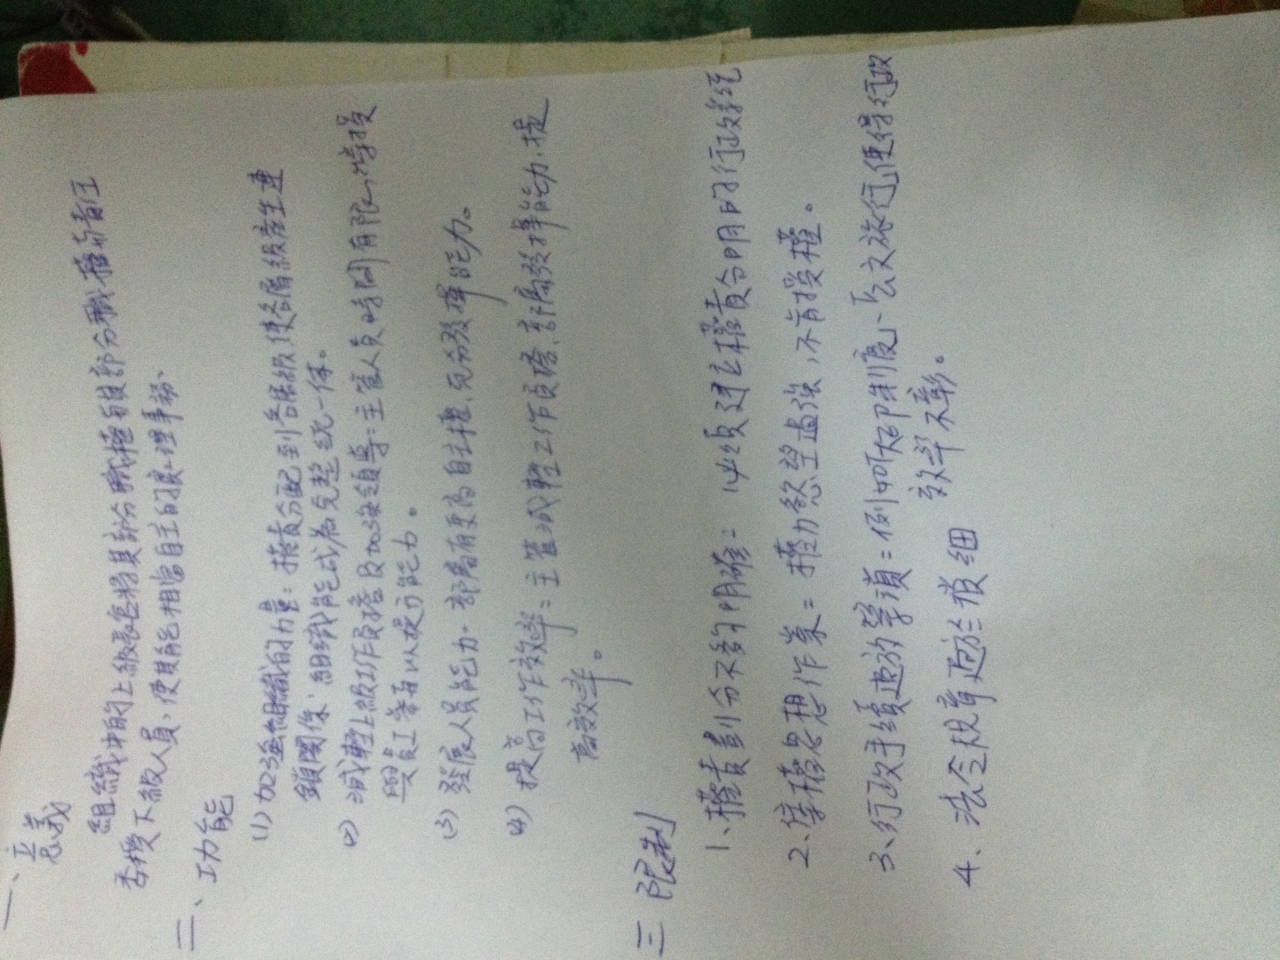 一、意義
組織中的上級長官將其部分職權與部分職務責任
委授下級人員,使其能相當自主的處理事務、
二、功能
(1)加強組織的力量:權責分配到各層級使各層級產生連
鎖關係,組織能成為完整統一体。
(2)減輕上級工作負擔及加強領導=主管人員時間有限,將授
與員工等可以提升能力。
(3)發展人員能力.部屬有更高自主權,充分發揮能力。
(4)提高工作效率=主管減輕工作負擔,部屬發揮能力,提
高效率。
三 限制
1、權責劃分不夠明確=必須建立權責分明的行政系統
2、集權思想作祟=權力慾望過強,不肯授權。
3、行政手續過於繁瑣=例如批示制度、公文旅行,使得行政
效率不彰。
4、法令規章過於複細